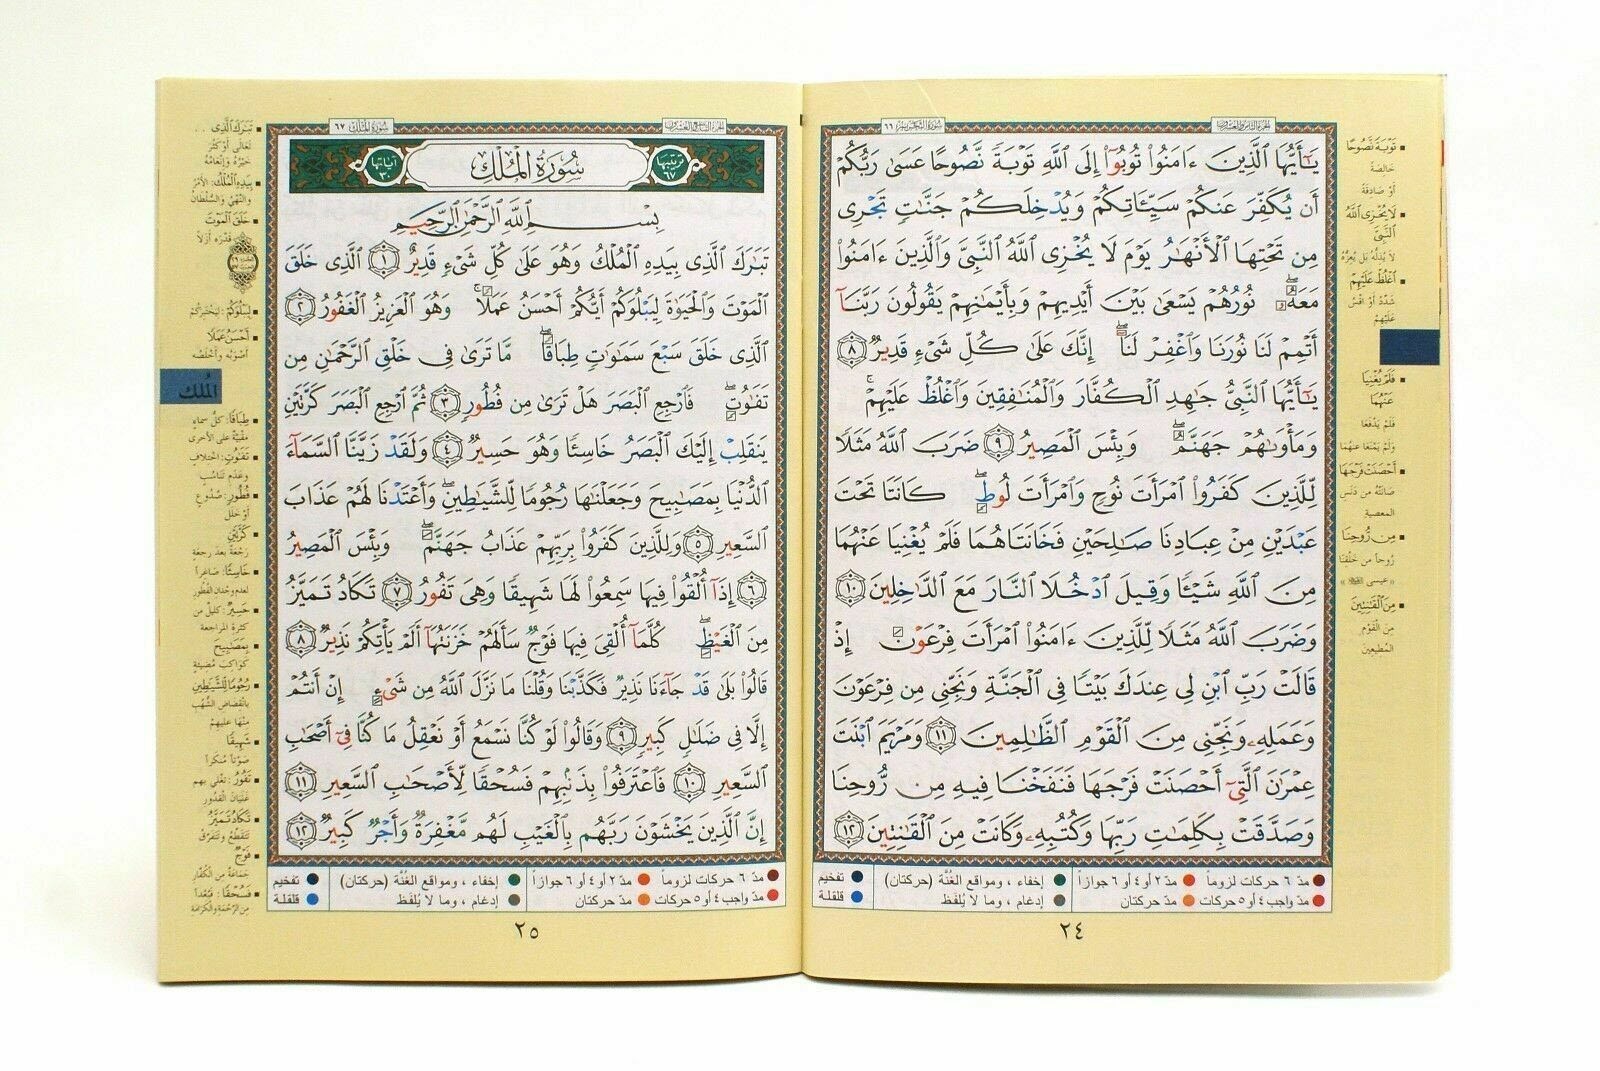 سورة التحريم ٦٦
يَٰٓأَيُّهَا ٱلَّذِينَ ءَامَنُوا۟ تُوبُوٓا۟ إِلَى ٱللَّهِ تَوْبَةً نَّصُوحًا عَسَىٰ رَبُّكُمْ
أَن يُكَفِّرَ عَنكُمْ سَيِّـَٔاتِكُمْ وَيُدْخِلَكُمْ جَنَّٰتٍ تَجْرِى
مِن تَحْتِهَا ٱلْأَنْهَٰرُ يَوْمَ لَا يُخْزِى ٱللَّهُ ٱلنَّبِىَّ وَٱلَّذِينَ ءَامَنُوا۟
مَعَهُۥ نُورُهُمْ يَسْعَىٰ بَيْنَ أَيْدِيهِمْ وَبِأَيْمَٰنِهِمْ يَقُولُونَ رَبَّنَآ
أَتْمِمْ لَنَا نُورَنَا وَٱغْفِرْ لَنَآ إِنَّكَ عَلَىٰ كُلِّ شَىْءٍ قَدِيرٌ ٨
يَٰٓأَيُّهَا ٱلنَّبِىُّ جَٰهِدِ ٱلْكُفَّارَ وَٱلْمُنَٰفِقِينَ وَٱغْلُظْ عَلَيْهِمْ
وَمَأْوَىٰهُمْ جَهَنَّمُ وَبِئْسَ ٱلْمَصِيرُ ٩ ضَرَبَ ٱللَّهُ مَثَلًا
لِّلَّذِينَ كَفَرُوا۟ ٱمْرَأَتَ نُوحٍ وَٱمْرَأَتَ لُوطٍ كَانَتَا تَحْتَ
عَبْدَيْنِ مِنْ عِبَادِنَا صَٰلِحَيْنِ فَخَانَتَاهُمَا فَلَمْ يُغْنِيَا عَنْهُمَا
مِنَ ٱللَّهِ شَيْـًٔا وَقِيلَ ٱدْخُلَا ٱلنَّارَ مَعَ ٱلدَّٰخِلِينَ ١٠
وَضَرَبَ ٱللَّهُ مَثَلًا لِّلَّذِينَ ءَامَنُوا۟ ٱمْرَأَتَ فِرْعَوْنَ إِذْ
قَالَتْ رَبِّ ٱبْنِ لِى عِندَكَ بَيْتًا فِى ٱلْجَنَّةِ وَنَجِّنِى مِن فِرْعَوْنَ
وَعَمَلِهِۦ وَنَجِّنِى مِنَ ٱلْقَوْمِ ٱلظَّٰلِمِينَ ١١ وَمَرْيَمَ ٱبْنَتَ
عِمْرَٰنَ ٱلَّتِىٓ أَحْصَنَتْ فَرْجَهَا فَنَفَخْنَا فِيهِ مِن رُّوحِنَا
وَصَدَّقَتْ بِكَلِمَٰتِ رَبِّهَا وَكُتُبِهِۦ وَكَانَتْ مِنَ ٱلْقَٰنِتِينَ ١٢
تَوْبَةً نَّصُوحًا
خالصة
أو صادقة
لَا يُخْزِى ٱللَّهُ
ٱلنَّبِىَّ
لا يُذلّه بل يُعِزّه
ٱغْلُظْ عَلَيْهِمْ
عليهم
فَلَمْ يُغْنِيَا
عَنْهُمَا
فلم يدفعا
ولم يمنعا عنهما
أَحْصَنَتْ فَرْجَهَا
صانته من دنس
المعصية
مِن رُّوحِنَا
روحاً من خلقنا
مِنَ ٱلْقَٰنِتِينَ
من القوم
المطيعين
مدّ ٦ حركات لزوماً مدّ ٢ أو ٤ أو ٦ جوازاً إخفاء ، ومواقع الغُنَّة (حركتان) تفخيم
مدّ واجب ٤ أو ٥ حركات مدّ حركتان إدغام ، وما لا يُلفَظ قلقلة
٢٤
سورة الملك ٦٧
ترتيبها ٦٧ سُورَةُ ٱلْمُلْكِ آياتها ٣٠
بِسْمِ ٱللَّهِ ٱلرَّحْمَٰنِ ٱلرَّحِيمِ
تَبَٰرَكَ ٱلَّذِى بِيَدِهِ ٱلْمُلْكُ وَهُوَ عَلَىٰ كُلِّ شَىْءٍ قَدِيرٌ ١ ٱلَّذِى خَلَقَ
ٱلْمَوْتَ وَٱلْحَيَوٰةَ لِيَبْلُوَكُمْ أَيُّكُمْ أَحْسَنُ عَمَلًا وَهُوَ ٱلْعَزِيزُ ٱلْغَفُورُ ٢
ٱلَّذِى خَلَقَ سَبْعَ سَمَٰوَٰتٍ طِبَاقًا مَّا تَرَىٰ فِى خَلْقِ ٱلرَّحْمَٰنِ مِن
تَفَٰوُتٍ فَٱرْجِعِ ٱلْبَصَرَ هَلْ تَرَىٰ مِن فُطُورٍ ٣ ثُمَّ ٱرْجِعِ ٱلْبَصَرَ كَرَّتَيْنِ
يَنقَلِبْ إِلَيْكَ ٱلْبَصَرُ خَاسِئًا وَهُوَ حَسِيرٌ ٤ وَلَقَدْ زَيَّنَّا ٱلسَّمَآءَ
ٱلدُّنْيَا بِمَصَٰبِيحَ وَجَعَلْنَٰهَا رُجُومًا لِّلشَّيَٰطِينِ وَأَعْتَدْنَا لَهُمْ عَذَابَ
ٱلسَّعِيرِ ٥ وَلِلَّذِينَ كَفَرُوا۟ بِرَبِّهِمْ عَذَابُ جَهَنَّمَ وَبِئْسَ ٱلْمَصِيرُ
٦ إِذَآ أُلْقُوا۟ فِيهَا سَمِعُوا۟ لَهَا شَهِيقًا وَهِىَ تَفُورُ ٧ تَكَادُ تَمَيَّزُ
مِنَ ٱلْغَيْظِ كُلَّمَآ أُلْقِىَ فِيهَا فَوْجٌ سَأَلَهُمْ خَزَنَتُهَآ أَلَمْ يَأْتِكُمْ نَذِيرٌ ٨
قَالُوا۟ بَلَىٰ قَدْ جَآءَنَا نَذِيرٌ فَكَذَّبْنَا وَقُلْنَا مَا نَزَّلَ ٱللَّهُ مِن شَىْءٍ إِنْ أَنتُمْ
إِلَّا فِى ضَلَٰلٍ كَبِيرٍ ٩ وَقَالُوا۟ لَوْ كُنَّا نَسْمَعُ أَوْ نَعْقِلُ مَا كُنَّا فِىٓ أَصْحَٰبِ
ٱلسَّعِيرِ ١٠ فَٱعْتَرَفُوا۟ بِذَنۢبِهِمْ فَسُحْقًا لِّأَصْحَٰبِ ٱلسَّعِيرِ ١١
إِنَّ ٱلَّذِينَ يَخْشَوْنَ رَبَّهُم بِٱلْغَيْبِ لَهُم مَّغْفِرَةٌ وَأَجْرٌ كَبِيرٌ ١٢
تَبَٰرَكَ ٱلَّذِى ..
تعالى أو كثر
خيره وإنعامه
بِيَدِهِ ٱلْمُلْكُ: الأمر
والنهي والسلطان
خَلَقَ ٱلْمَوْتَ
قدّره أزلاً
لِيَبْلُوَكُمْ: ليختبركم
أَحْسَنُ عَمَلًا
أصوبه وأخلصه
المُلك
طِبَاقًا: كل سماء
مقبّبة على الأخرى
تَفَٰوُتٍ: اختلاف
وعدم تناسب
فُطُورٍ: صدوع
أو خلل
كَرَّتَيْنِ
رجعة بعد رجعة
خَاسِئًا: صاغراً
لعدم وجدان الفطور
حَسِيرٌ: كليل من
كثرة المراجعة
بِمَصَٰبِيحَ
كواكب مضيئة
رُجُومًا لِّلشَّيَٰطِينِ
بانقضاض الشهب
منها عليهم
شَهِيقًا
صوتاً منكراً
تَفُورُ: تغلي بهم
غليان القدور
تَكَادُ تَمَيَّزُ
تتقطع وتتفرق
فَوْجٌ
جماعة من الكفار
فَسُحْقًا: فبُعداً
من الرحمة والكرامة
مدّ ٦ حركات لزوماً مدّ ٢ أو ٤ أو ٦ جوازاً إخفاء ، ومواقع الغُنَّة (حركتان) تفخيم
مدّ واجب ٤ أو ٥ حركات مدّ حركتان إدغام ، وما لا يُلفَظ قلقلة
٢٥